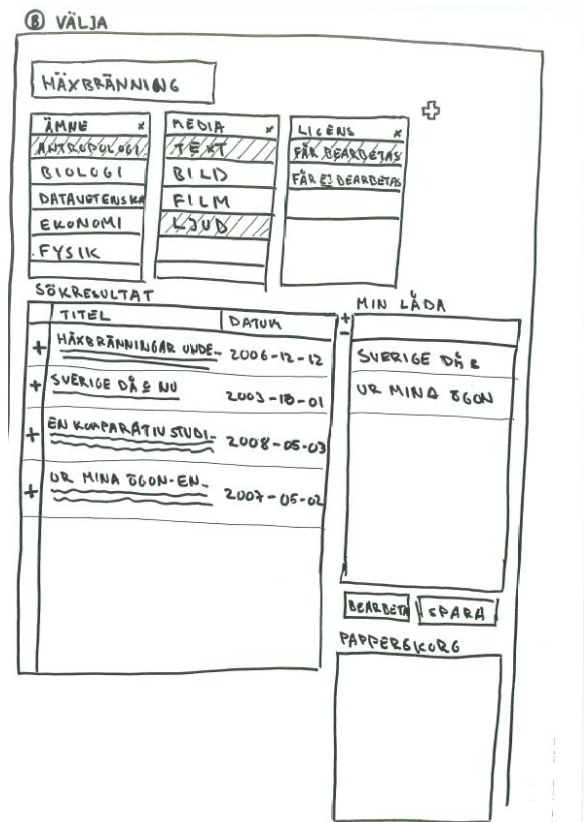 B VÄLJA
HÄXBRÄNNING
ÄMNE x
ANTROPOLOGI
BIOLOGI
DATAVETENSKA
EKONOMI
FYSIK
MEDIA x
TEXT
BILD
FILM
LJUD
LICENS x
FÅR BEARBETAS
FÅR EJ BEARBETAS
SÖKRESULTAT
TITEL DATUM
+ HÄXBRÄNNINGAR UNDE- 2006-12-12
+ SVERIGE DÅ & NU 2003-10-01
+ EN KOMPARATIV STUDI- 2008-05-03
+ UR MINA ÖGON-EN- 2007-05-02
MIN LÅDA
+
-
SVERIGE DÅ &
UR MINA ÖGON
BEARBETA SPARA
PAPPERSKORG